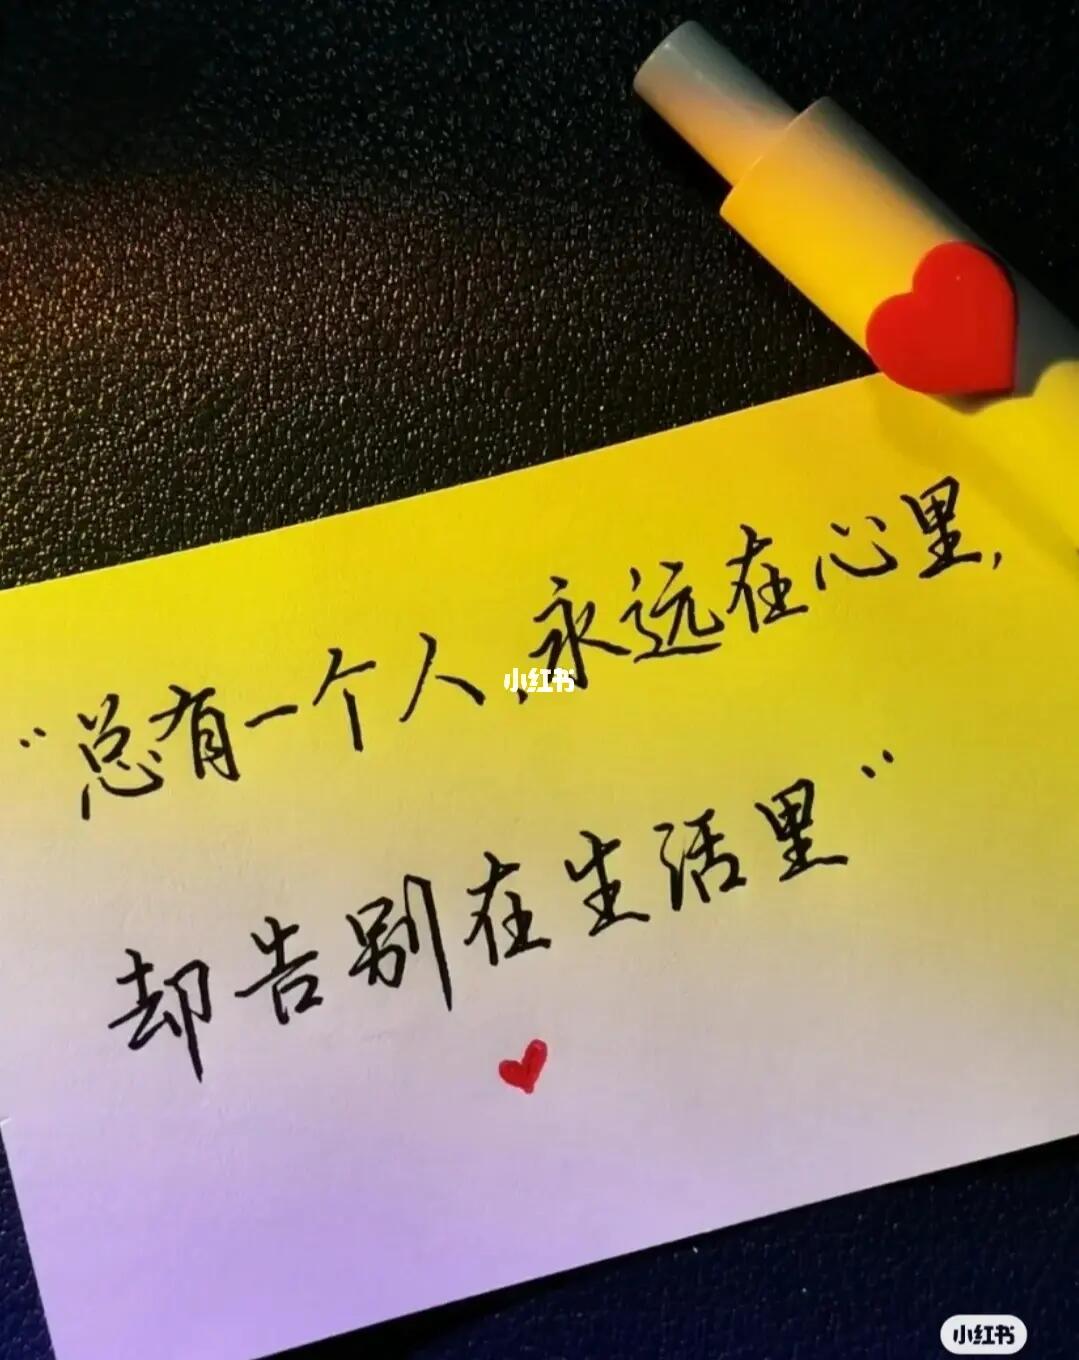 “总有一个人,永远在心里,
小红书
却告别在生活里”
小红书